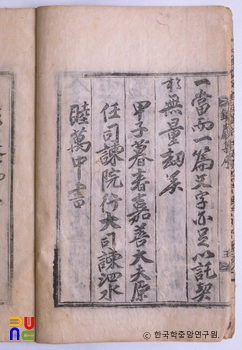 一當而一篇文字不足以託契
於無量劫矣
甲子暮春嘉善大夫原
任司諫院行大司諫泗水
睦萬中書
한국학중앙연구원